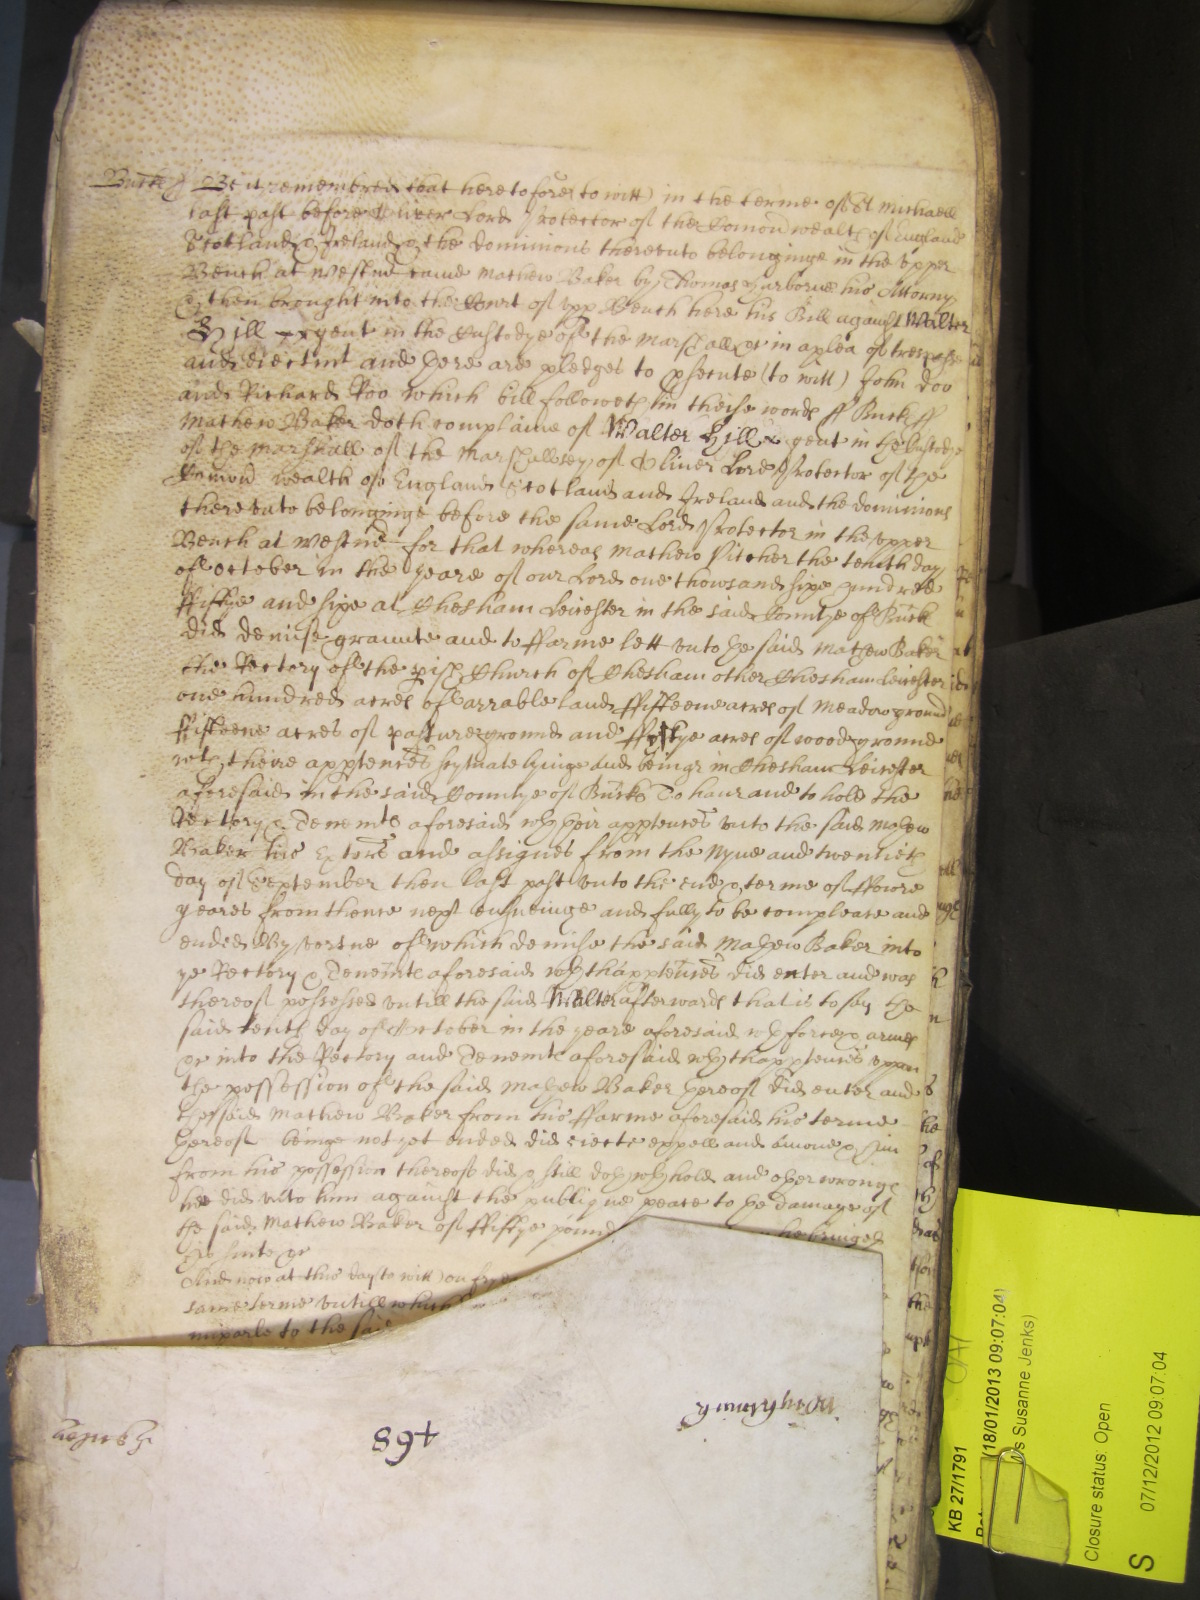 Buck ff Be it remembred that heretofore (to witt) in the terme of St Michaell
last past before Oliver Lord Protector of the Comon wealth of England
Scotland & Ireland & the dominions thereunto belonginge in the upper
Bench at Westmr came Mathew Baker by Thomas his Attorny
& then brought into the Court of upp Bench here his Bill against Walter
Hill gent in the Custodye of the Marshall &c in a plea of trespasse
and eiectmt and here are pledges to psecute (to witt) John Doo
and Richard Roo which bill followeth in theise words ff Buck ff
Mathew Baker doth complaine of Walter Hill gent in the Custodye
of the Marshall of the Marshallsey of Oliver Lord Protector of the
Comon wealth of England Scotland and Ireland and the dominions
thereunto belonginge before the same Lord Protector in the upper
Bench at Westmr for that whereas Mathew Pitcher the tenth day
of October in the yeare of our Lord one thousand sixe hundred
ffiftye and sixe at Chesham Leicester in the said Countye of Buck
did demise graunte and to ffarme lett unto the said Mathew Baker
the Rectory of the pish Church of Chesham other Chesham Leicester
one hundred acres of arrable land ffifteene acres of meadow ground
ffifteene acres of pasture ground and acres of wood ground
wth theire apptences scytuate lyinge and beinge in Chesham Leicester
aforesaid in the said Countye of Bucks To haue and to hold the
Rectory & Tenemts aforesaid wth their apptences unto the said Mathew
Baker his Extors and assignes from the Nyne and twentieth
day of September then last past unto the end & terme of ffowre
yeares from thence next ensueinge and fully to be compleate and
ended By vertue of which demise the said Mathew Baker into
ye Rectory & Tenemte aforesaid wth thapptences did enter and was
thereof possessed untill the said Walter afterwards that is to say the
said tenth day of October in the yeare aforesaid wth force & armes
&c into the Rectory and Tenemte aforesaid wth thapptences uppon
the possession of the said Mathew Baker thereof did enter and
the said Mathew Baker from his ffarme aforesaid his terme
thereof beinge not yet ended did eiecte expell and amove & him
from his possession thereof did & still doth wthhold and other wronge
hee did unto him against the publique peace to the damage of
the said Mathew Baker of ffiftye pound he bringes
the suite &c
And now at this day (to witt) on
same terme untill which
imparle to the said
468
KB 27/1791
(18/01/2013 09:07:04)
s Susanne Jenks)
Closure status: Open
S
07/12/2012 09:07:04